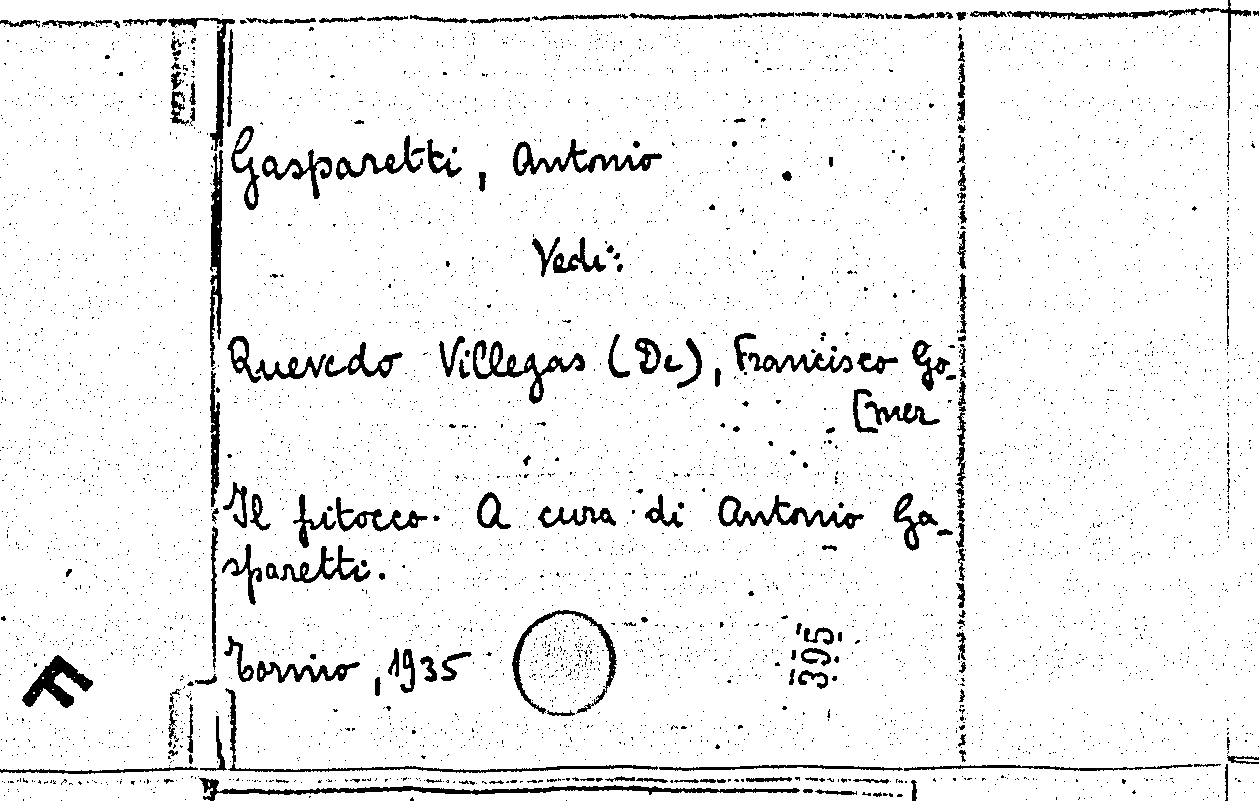 Gasparetti, Antonio
Vedi:
Quevedo Villegas (De), Francisco Go-
[mez
Il pitocco. A cura di Antonio Ga-
sparetti.
Torino, 1935
395
F